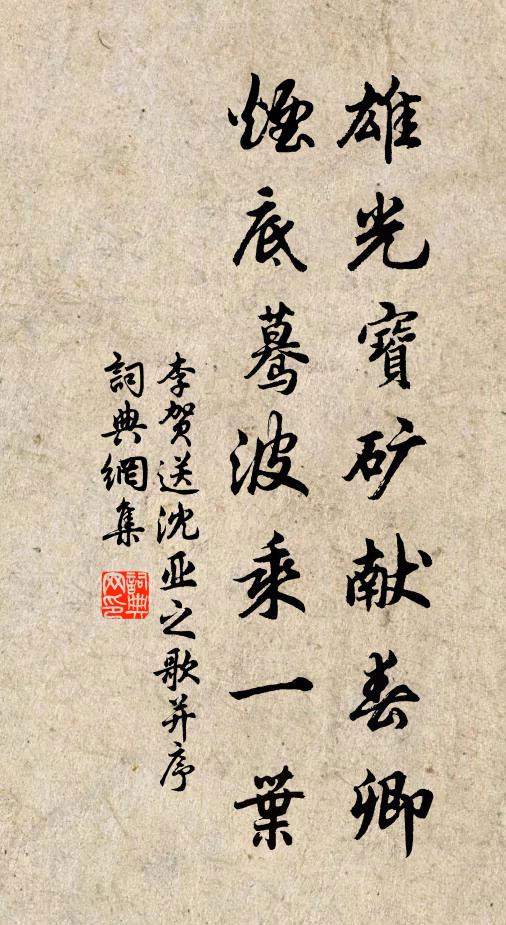 雄光寶矿献春卿
煙底驀波乘一葉
李贺送沈亚之歌并序
詞典網集
詞典网印